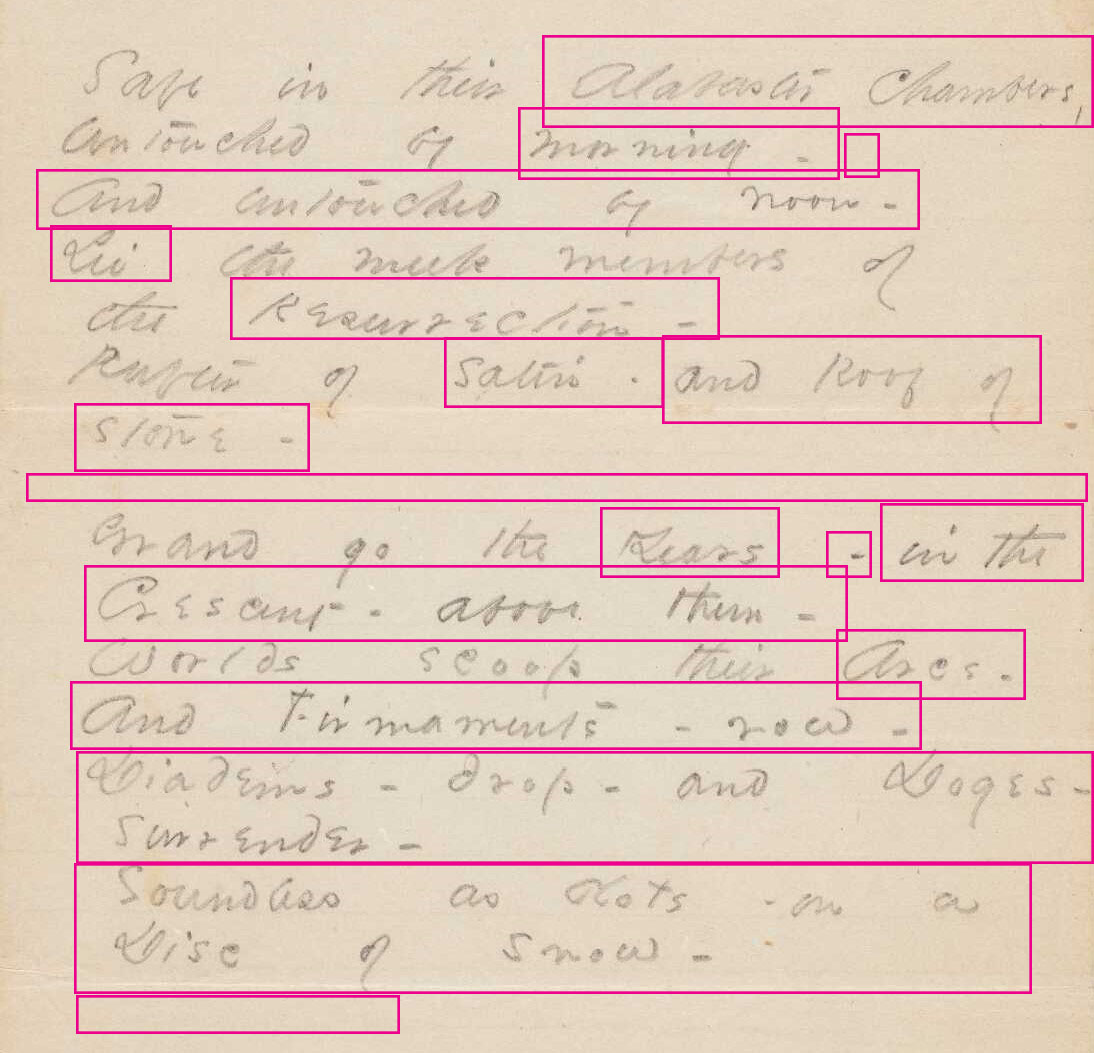 Safe in their Alabaster Chambers,
Untouched by morning -
And untouched by noon -
Lie the meek members of
the Resurrection -
Rafter of Satin - and Roof of
Stone -
Grand go the Years - in the
Crescent - above them -
Worlds scoop their Arcs -
And Firmaments - row -
Diadems - drop - and Doges -
Surrender -
Soundless as Dots - on a
Disc of Snow -